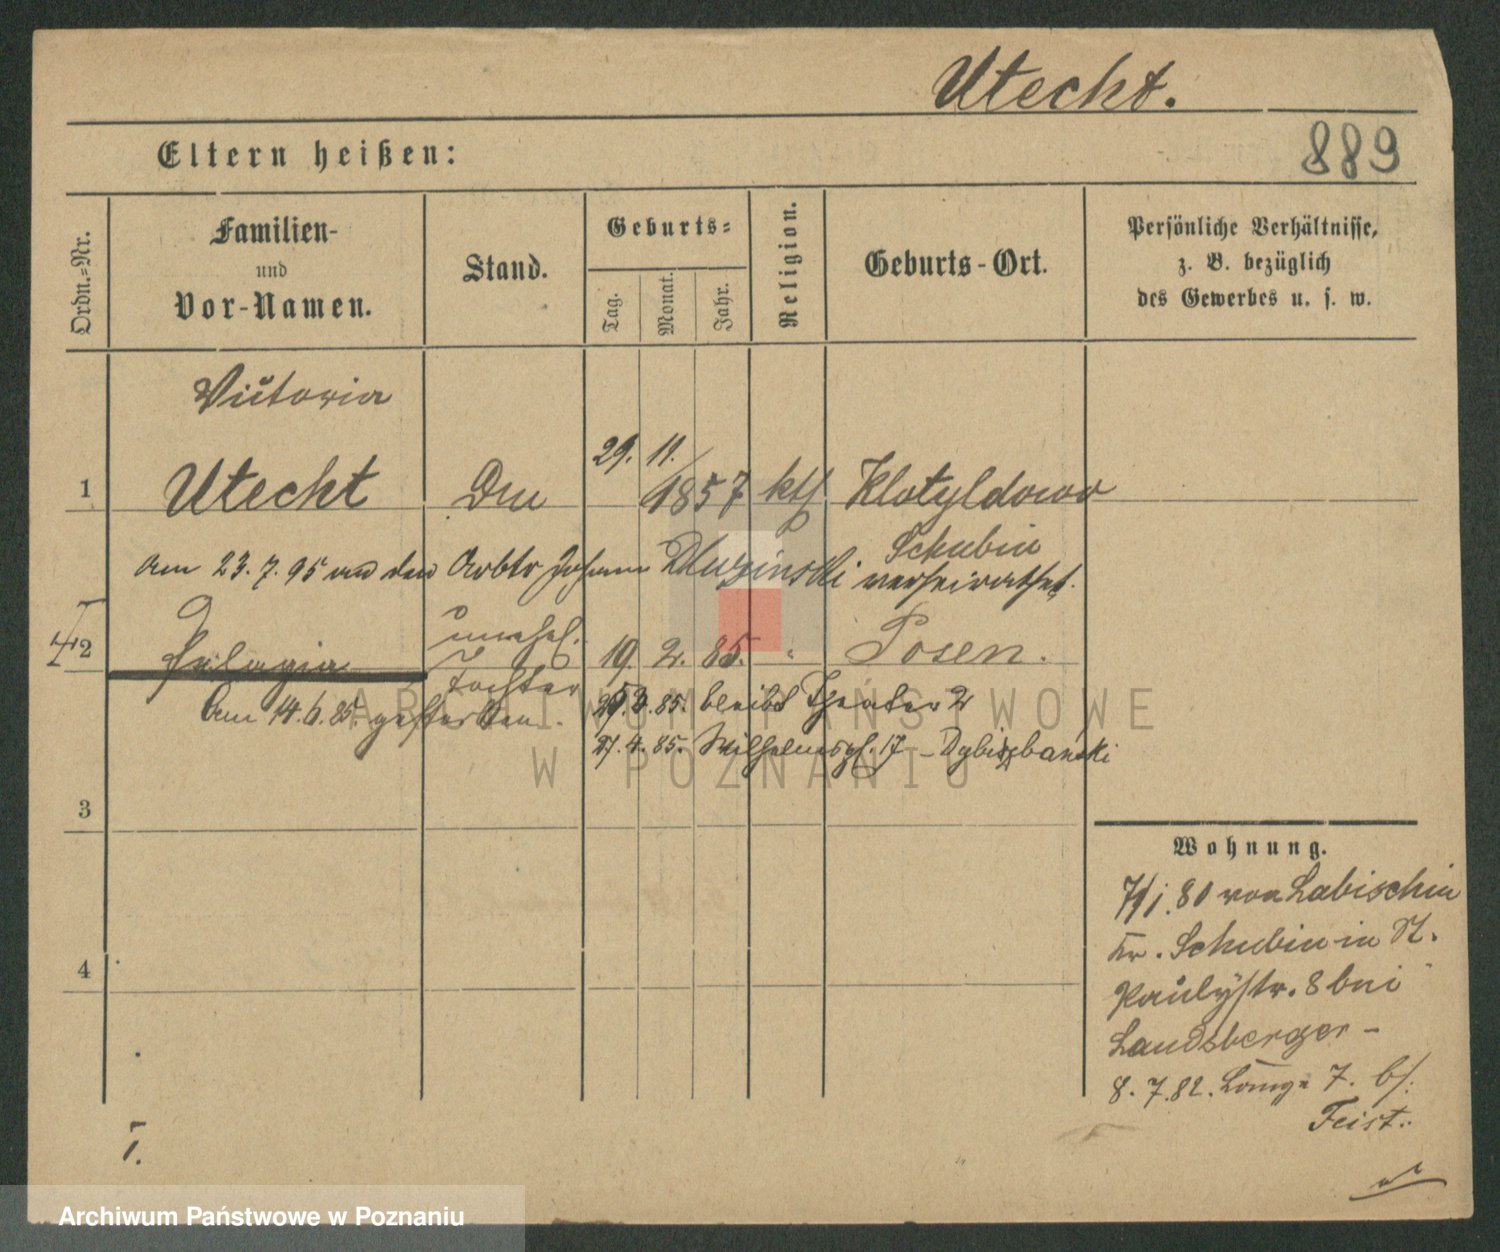 Utecht.
889
Eltern heißen:
Ordn.-Nr.
Familien-
und
Vor-Namen.
Stand.
Geburts-
Tag.
Monat.
Jahr.
Religion.
Geburts-Ort.
Persönliche Verhältnisse,
z. B. bezüglich
des Gewerbes u. s. w.
Victoria
29. 11.
1 Utecht 1857 kth Klotyldowo
Schubin
am 23.7.95 an den Arbtr Johann Dluzinski verheirathet.
2 Pelagia unehel. 19. 2. 85. " Posen.
Tochter
Am 14.6.85 gestorben.
.85. bleibt Theater 2
27.4.85. Wilhelmspl. 17 -
3
4
Wohnung.
80 von Labischin
Kr. Schubin in St.
Paulystr. 8 bei
Landsberger -
8.7.82. Lange 7. b/:
Feist.
I.
ARCHIWUM PAŃSTWOWE
W POZNANIU
Archiwum Państwowe w Poznaniu